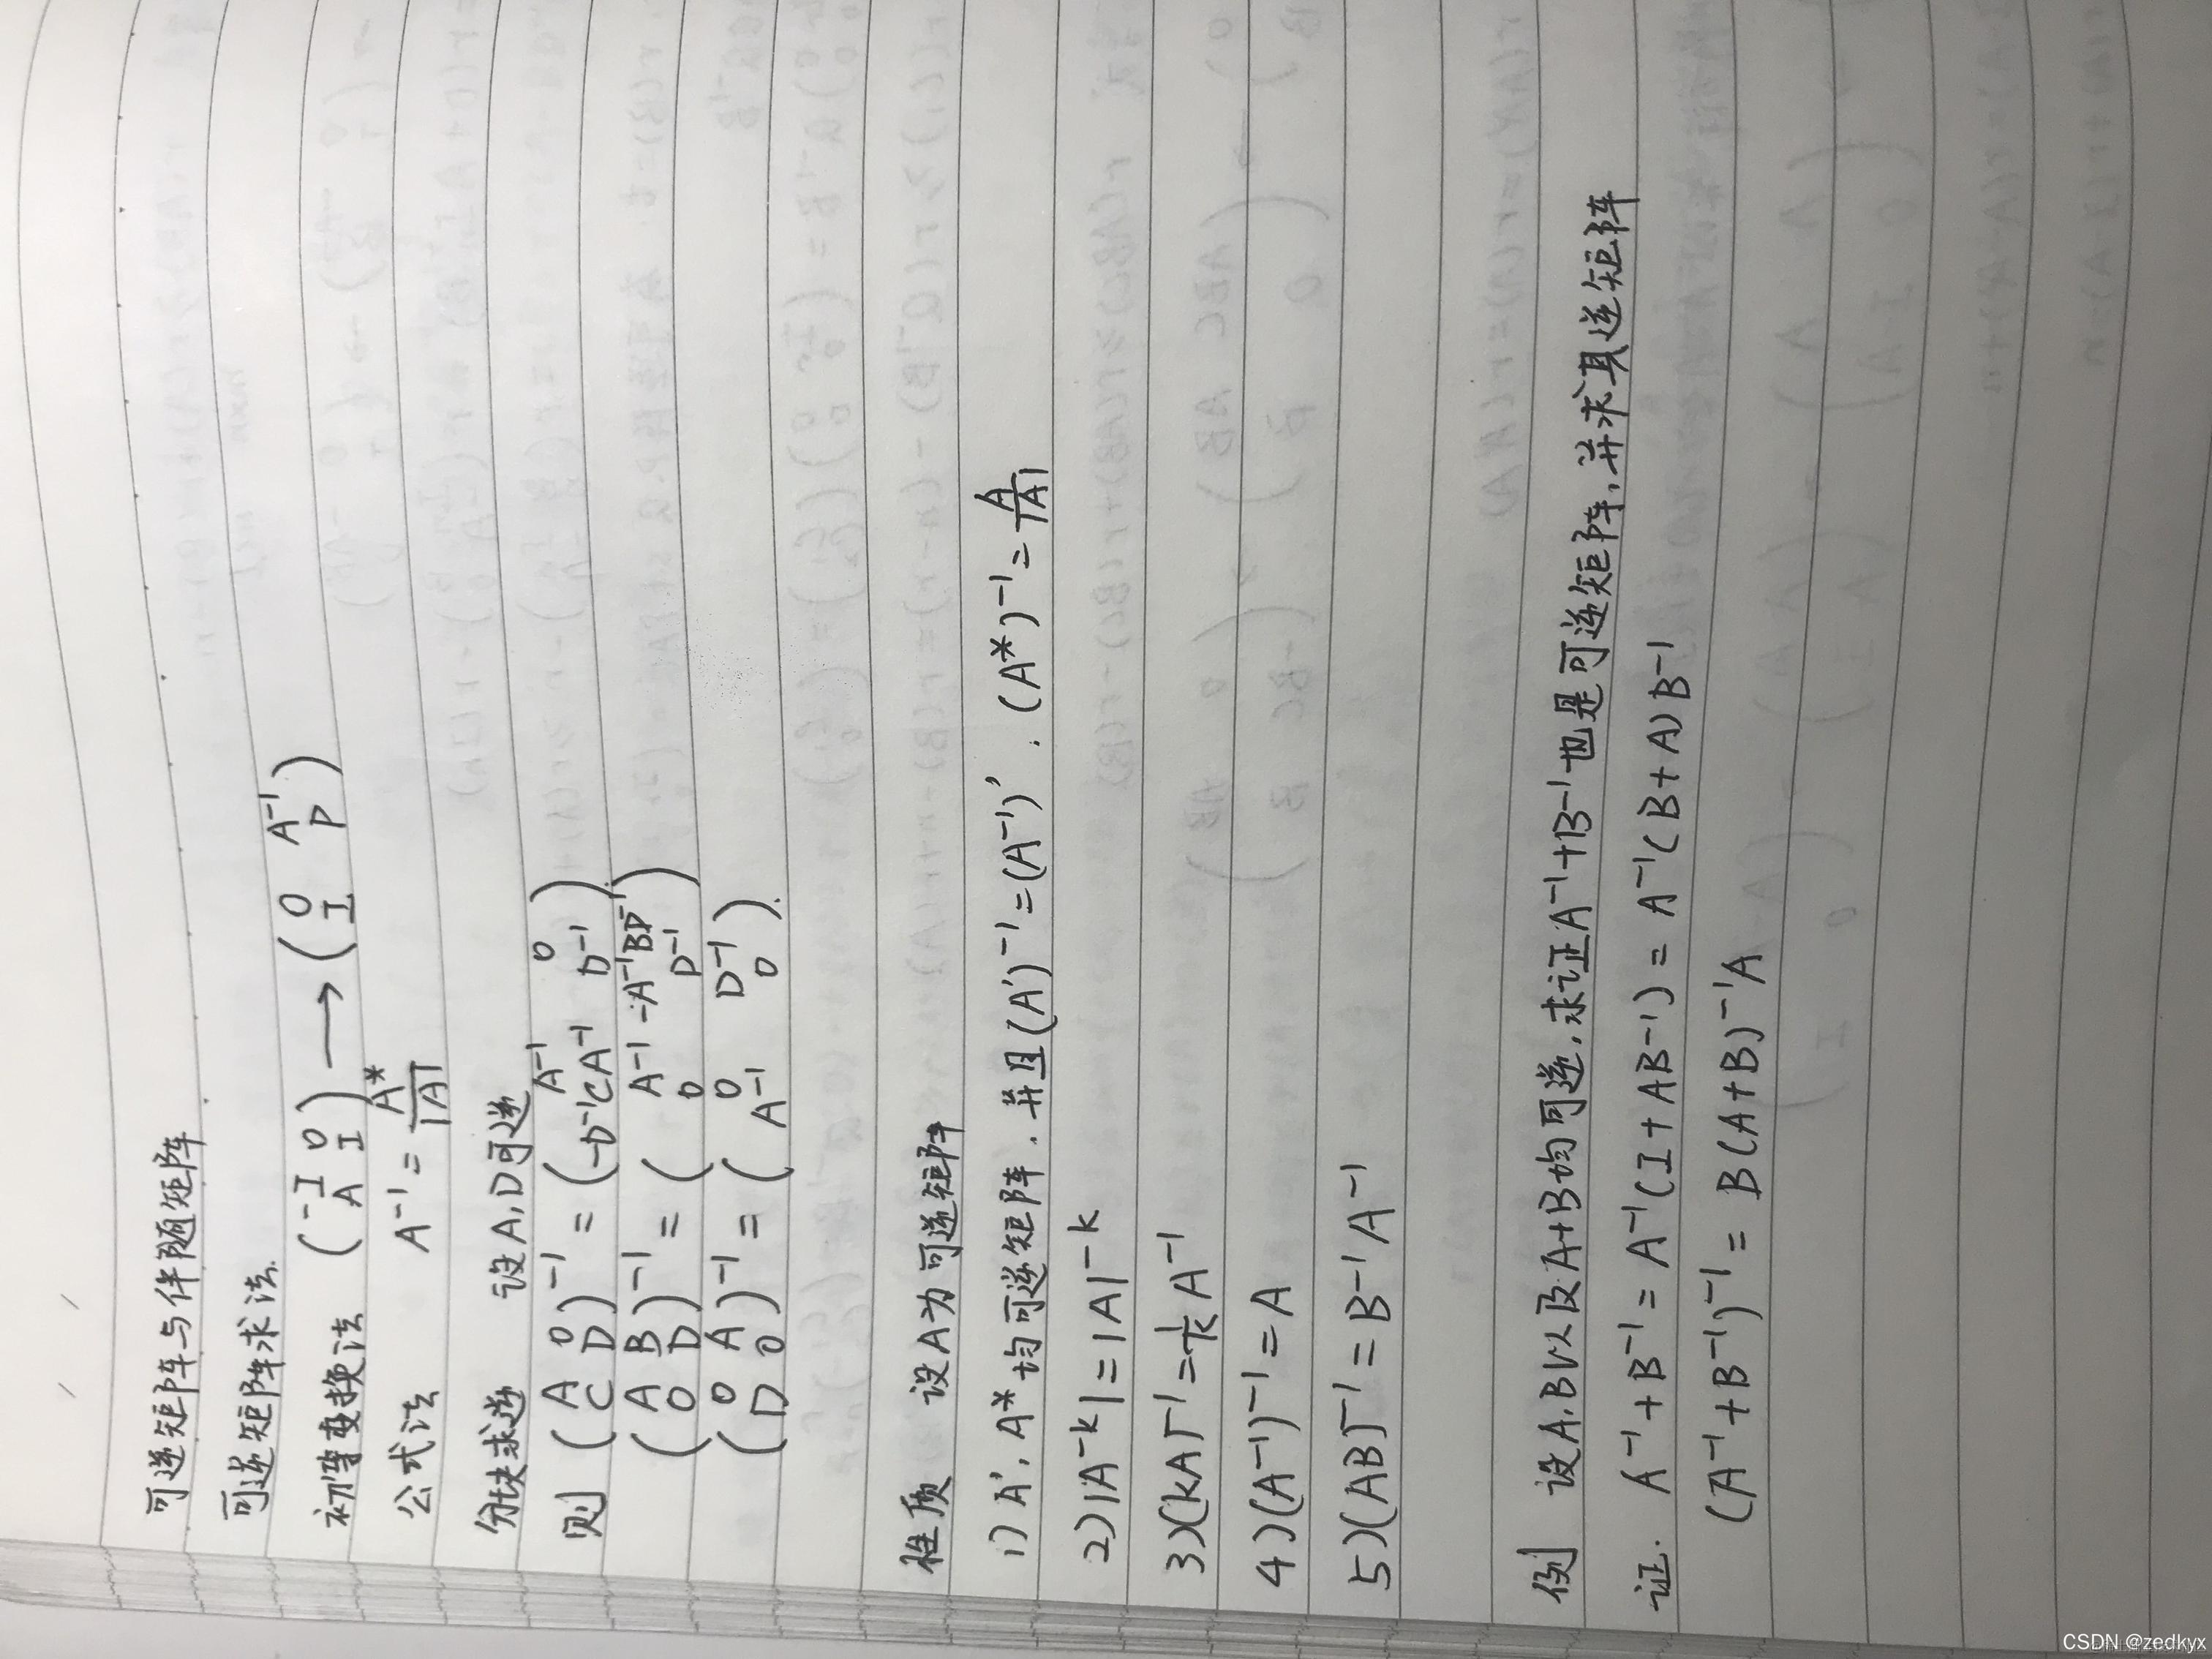 可逆矩阵与伴随矩阵
可逆矩阵求法.
初等变换法 (-I 0 / A I) → (0 A⁻¹ / I P)
公式法 A⁻¹ = A*/|A|
分块求逆 设A,D可逆
则 (A 0 / C D)⁻¹ = (A⁻¹ 0 / -D⁻¹CA⁻¹ D⁻¹)
(A B / 0 D)⁻¹ = (A⁻¹ -A⁻¹BD⁻¹ / 0 D⁻¹)
(0 A / D 0)⁻¹ = (0 D⁻¹ / A⁻¹ 0).
性质 设A为可逆矩阵
1) A', A* 均可逆矩阵, 并且(A')⁻¹=(A⁻¹)', (A*)⁻¹=A/|A|
2) |A⁻ᵏ|=|A|⁻ᵏ
3) (kA)⁻¹=1/k A⁻¹
4) (A⁻¹)⁻¹=A
5) (AB)⁻¹=B⁻¹A⁻¹
例 设A,B以及A+B均可逆,求证A⁻¹+B⁻¹也是可逆矩阵,并求其逆矩阵
证. A⁻¹+B⁻¹=A⁻¹(I+AB⁻¹)=A⁻¹(B+A)B⁻¹
(A⁻¹+B⁻¹)⁻¹=B(A+B)⁻¹A
CSDN @zedkyx